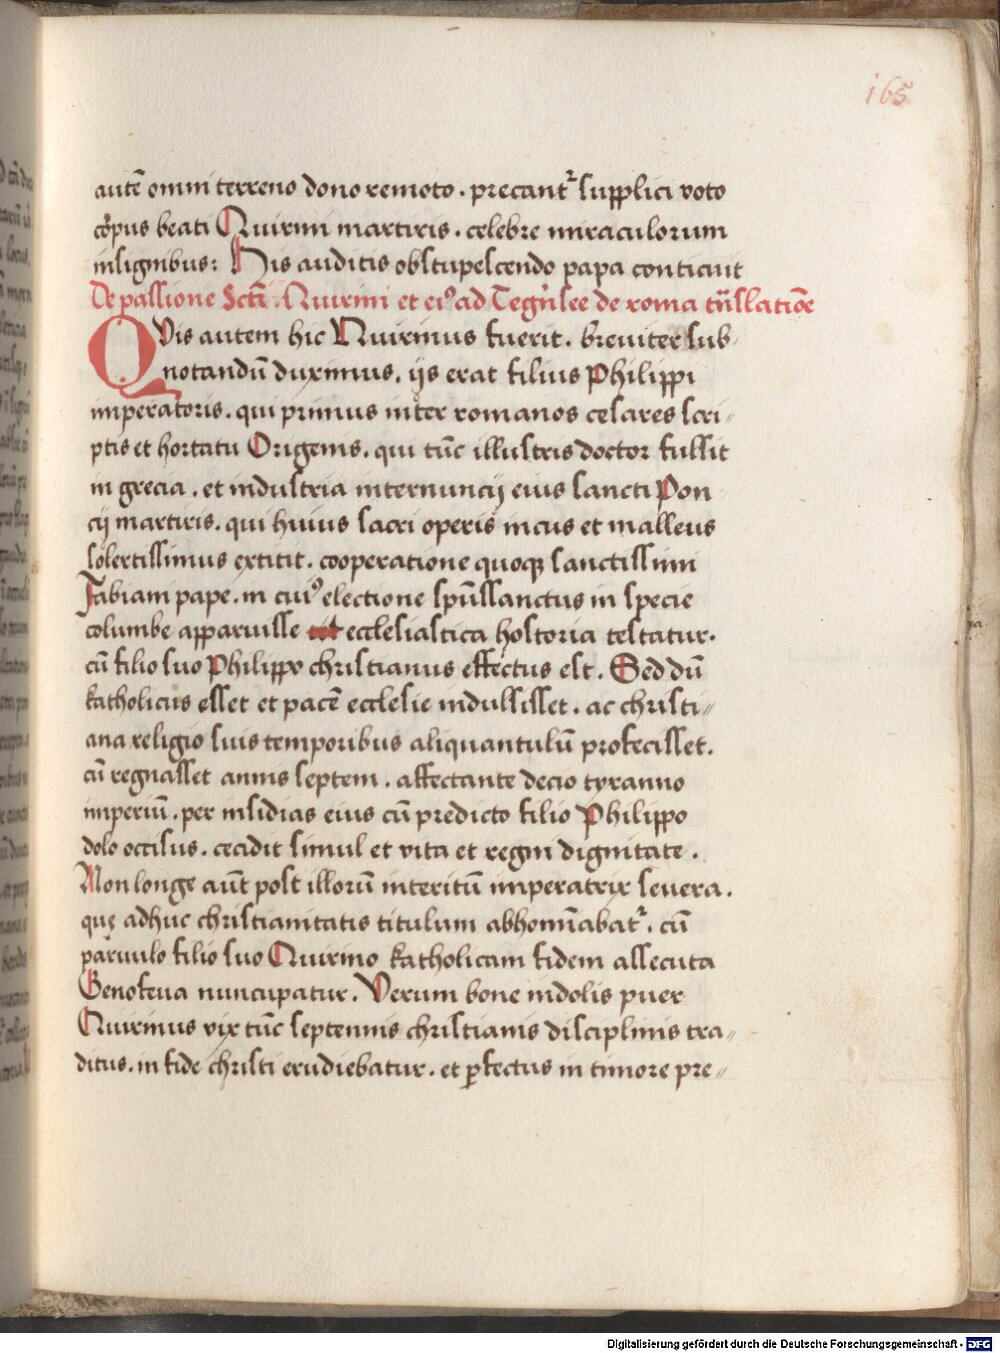 165
autē omni terreno dono remoto . precantʳ supplici voto
cōpus beati Quirini martiris . celebre miraculorum
insignibus : His auditis obstupescendo papa conticuit
De passione Scti . Quirini et eiꝰ ad Tegr̄nsee de roma trāslatiōe
QVis autem hic Quirinus fuerit . breuiter sub-
notandū duximus . ijs erat filius Philippi
imperatoris . qui primus inter romanos cesares scri-
ptis et hortatu Origenis . qui tūc illustris doctor fulsit
in grecia . et industria internuncij eius sancti Pon-
cij martiris . qui huius sacri operis incus et malleus
solertissimus extitit . cooperatione quoqꝫ sanctissimi
Fabiani pape . in cuiꝰ electione spūssanctus in specie
columbe apparuisse ecclesiastica hostoria testatur .
cū filio suo Philippo christianus effectus est . Sed dū
katholicus esset et pacē ecclesie indulsisset . ac christi-
ana religio suis temporibus aliquantulū profecisset .
cū regnasset annis septem . affectante decio tyranno
imperiū . per insidias eius cū predicto filio Philippo
dolo occisus . cecidit simul et vita et regni dignitate .
Non longe aūt post illorū interitū imperatrix seuera .
quę adhuc christianitatis titulum abhominabatʳ . cū
paruulo filio suo Quirino katholicam fidem assecuta
Genofeua nuncupatur . Verum bone indolis puer
Quirinus vix tūc septennis christianis disciplinis tra-
ditus . in fide christi erudiebatur . et ꝑfectus in timore pre-
Digitalisierung gefördert durch die Deutsche Forschungsgemeinschaft - DFG